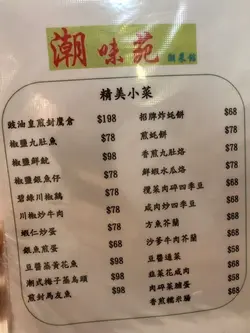 潮味苑 潮菜館
精美小菜
豉油皇煎封鷹倉 $198
椒鹽九肚魚 $78
椒鹽鮮魷 $98
椒鹽銀魚仔 $78
碧綠川椒鷄 $78
川椒炒牛肉 $78
蝦仁炒蛋 $78
銀魚煎蛋 $68
豆醬蒸黃花魚 $98
潮式梅子蒸烏頭 $98
煎封馬友魚 $98
招牌炸蚝餅 $68
煎蚝餅 $78
香煎九肚烙 $78
鮮蝦水瓜烙 $78
欖菜肉碎四季豆 $68
咸肉炒四季豆 $68
方魚芥蘭 $68
沙爹牛肉芥蘭 $68
豆醬通菜 $58
韭菜花咸肉 $58
肉碎菜脯蛋 $68
香煎糯米腸 $68